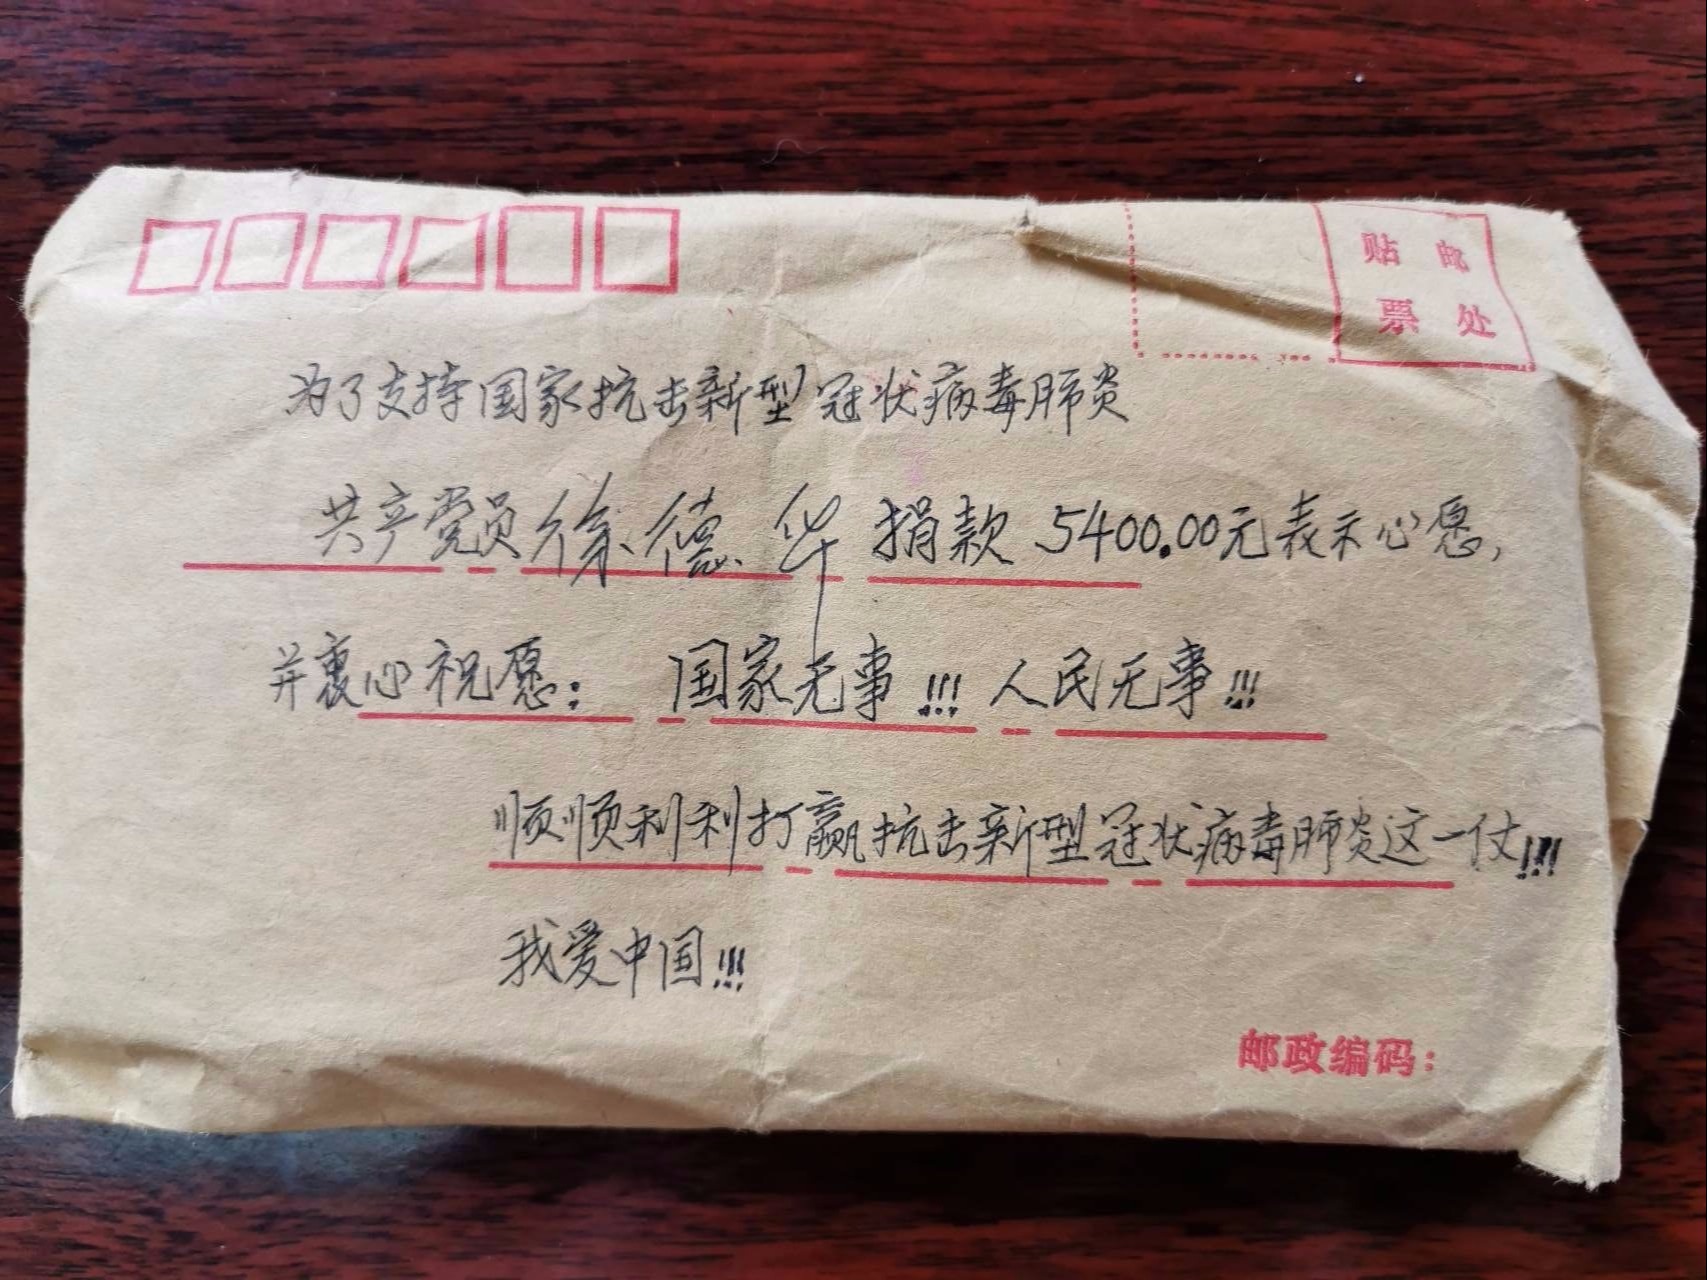 贴邮
票处
为了支持国家抗击新型冠状病毒肺炎
共产党员徐德华捐款5400.00元表示心愿,
并裹心祝愿: 国家无事!!!人民无事!!!
顺顺利利打赢抗击新型冠状病毒肺炎这一仗!!!
我爱中国!!!
邮政编码: